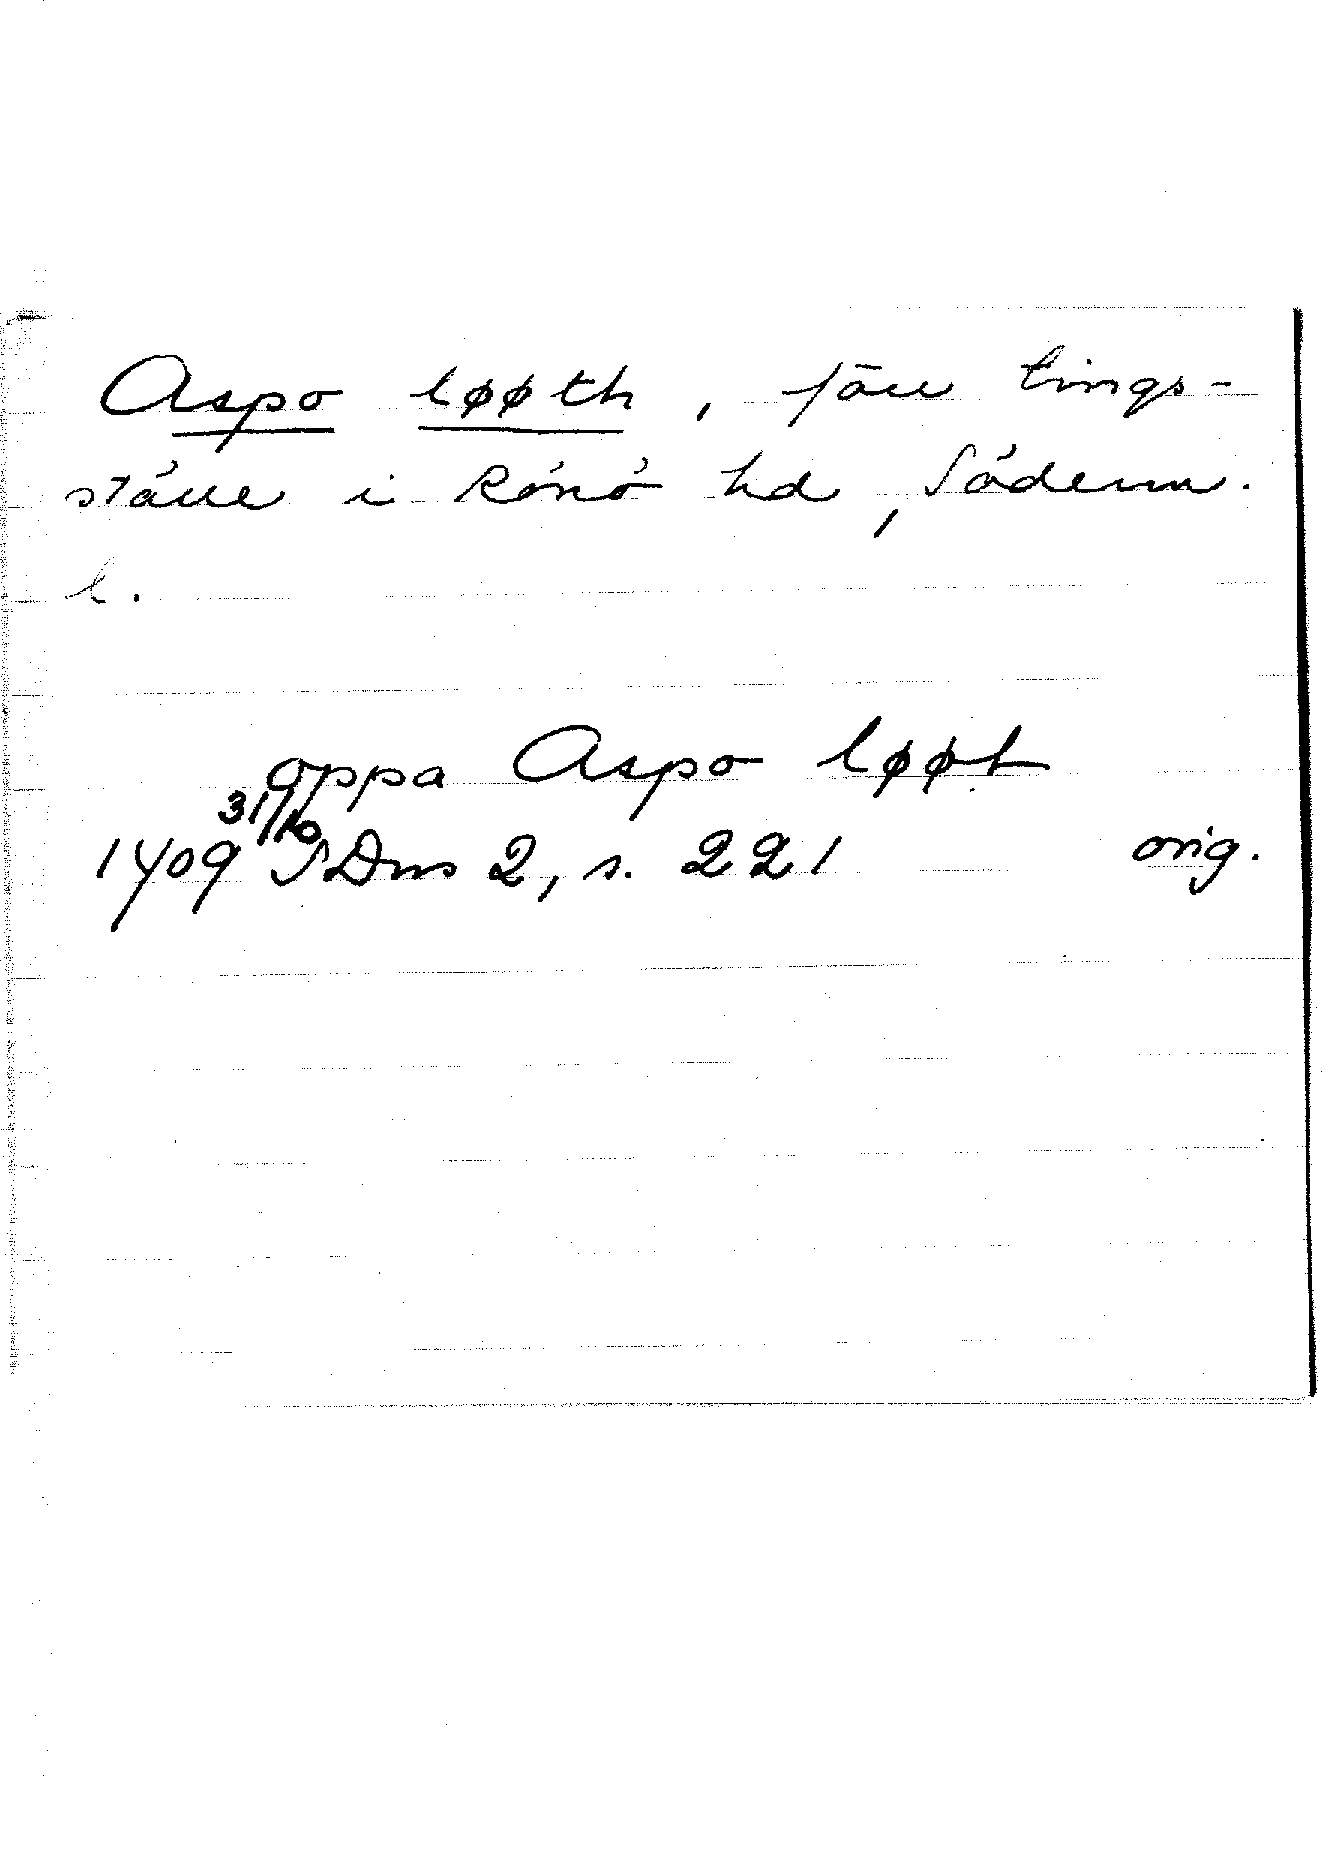 Aspo løøth, förv tings-
ställe i Rönö hd, Söderm.
l.
oppa Aspo løøt
1409 31/10 SDns 2, s. 221 orig.